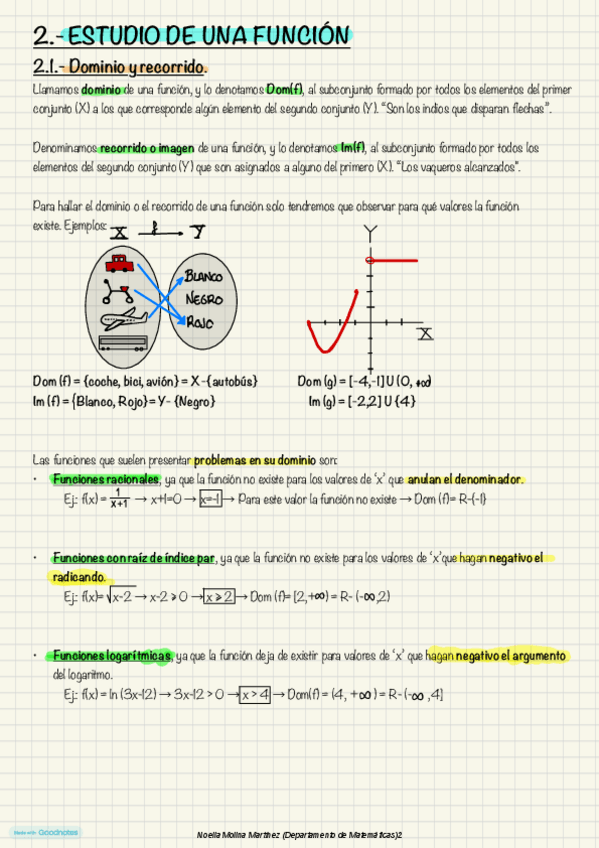 2.- ESTUDIO DE UNA FUNCIÓN
2.1.- Dominio y recorrido.
Llamamos dominio de una función, y lo denotamos Dom(f), al subconjunto formado por todos los elementos del primer
conjunto (X) a los que corresponde algún elemento del segundo conjunto (Y). “Son los indios que disparan flechas”.
Denominamos recorrido o imagen de una función, y lo denotamos Im(f), al subconjunto formado por todos los
elementos del segundo conjunto (Y) que son asignados a alguno del primero (X). “Los vaqueros alcanzados”.
Para hallar el dominio o el recorrido de una función solo tendremos que observar para qué valores la función
existe. Ejemplos:
X f Y
BLANCO
NEGRO
ROJO
Y
X
Dom (f) = {coche, bici, avión} = X -{autobús}
Im (f) = {Blanco, Rojo} = Y- {Negro}
Dom (g) = [-4,-1] U (0, +∞)
Im (g) = [-2,2] U {4}
Las funciones que suelen presentar problemas en su dominio son:
• Funciones racionales, ya que la función no existe para los valores de ‘x’ que anulan el denominador.
Ej: f(x) = 1/x+1 → x+1=0 → x=-1 → Para este valor la función no existe → Dom (f)= R-{-1}
• Funciones con raíz de índice par, ya que la función no existe para los valores de ‘x’que hagan negativo el
radicando.
Ej: f(x)= √x-2 → x-2 ⩾ 0 → x ⩾ 2 → Dom (f)= [2,+∞) = R- (-∞,2)
• Funciones logarítmicas, ya que la función deja de existir para valores de ‘x’ que hagan negativo el argumento
del logaritmo.
Ej: f(x) = ln (3x-12) → 3x-12 > 0 → x > 4 → Dom(f) = (4, +∞ ) = R- (-∞ ,4]
Made with Goodnotes
Noelia Molina Martínez (Departamento de Matemáticas)2